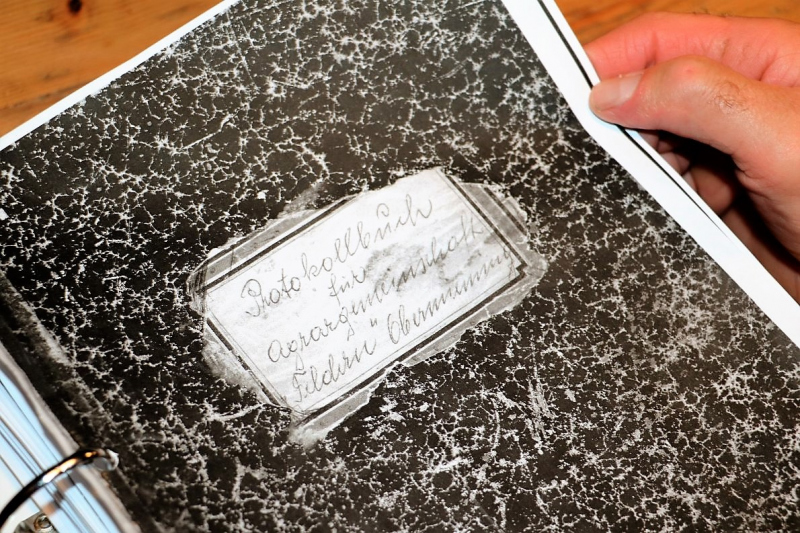 Protokollbuch
für
Agrargemeinschaft
"Feldern" Obermieming